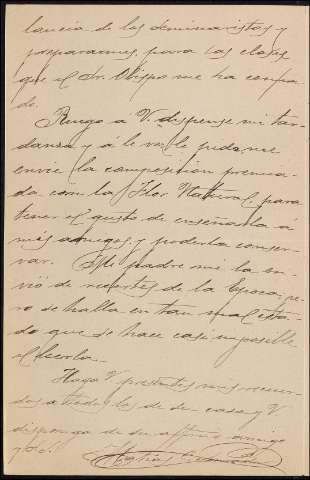 lancia de los seminaristas y
prepararme para las clases
que el Sr. Obispo me ha confia
do.
Ruego a V. dispense mi tar-
danza y á la vez le pido me
envie la composición premia-
da con la Flor Natural para
tener el gusto de enseñarla á
mis amigos y poderla conser-
var. Mi padre me la en-
vió de recortes de la Epoca, pe-
ro se halla en tan mal esta-
do que se hace casi imposible
el leerla.
Haga V presentes mis recuer-
dos a todos los de su casa y V
disponga de su affmo amigo